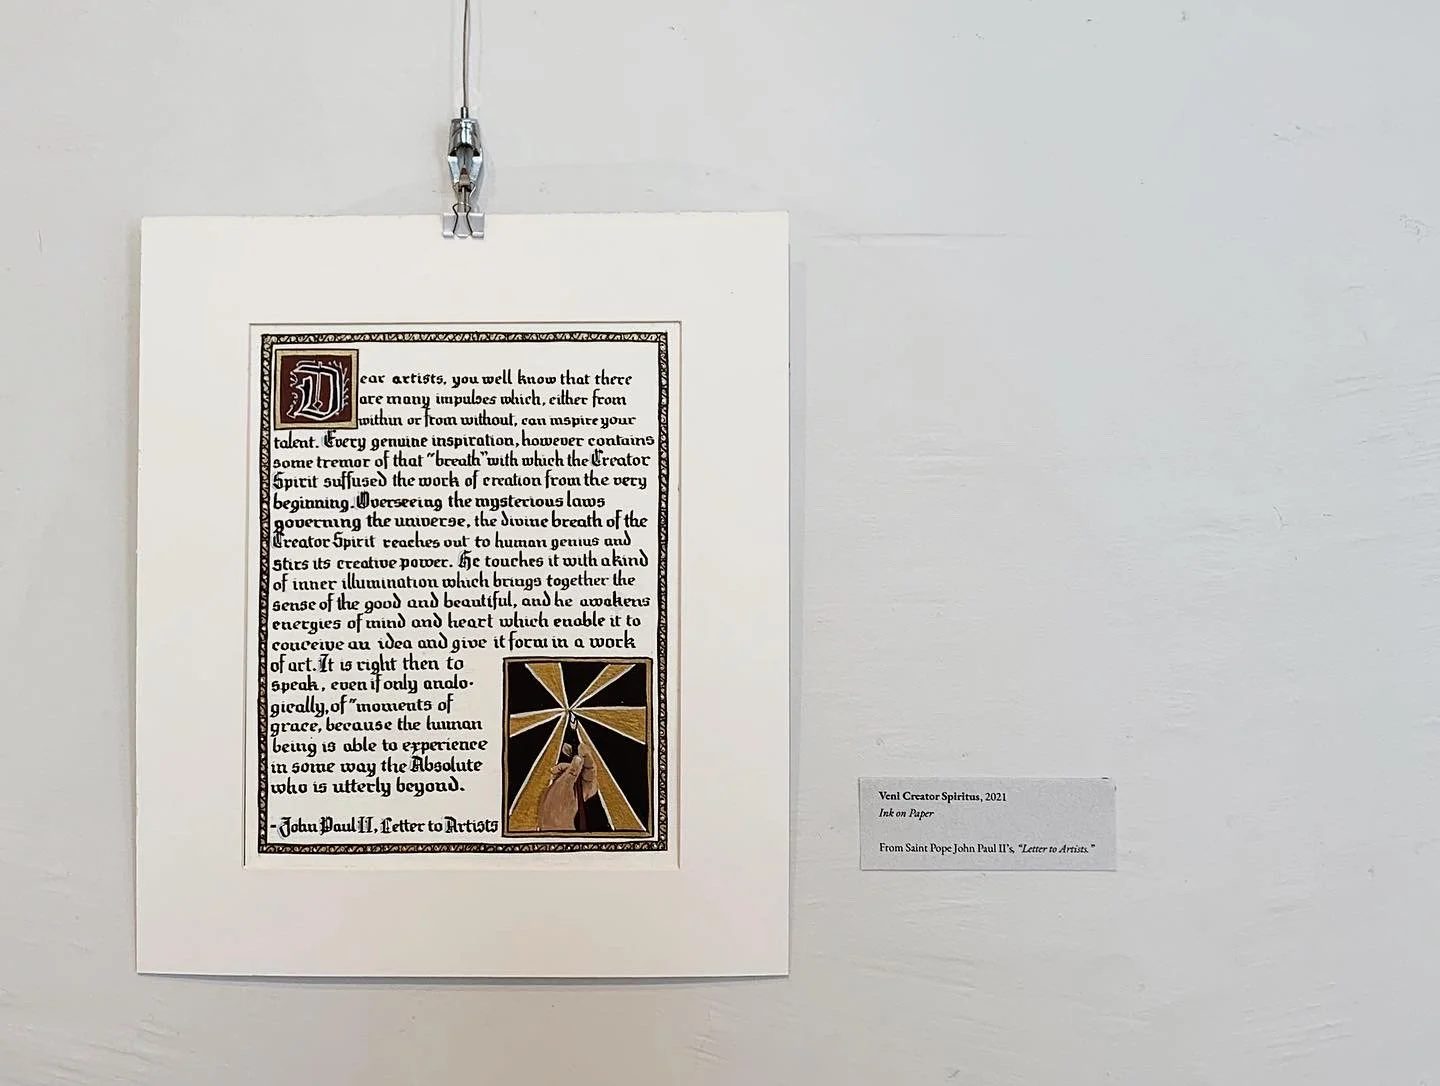 Dear artists, you well know that there
are many impulses which, either from
within or from without, can inspire your
talent. Every genuine inspiration, however contains
some tremor of that "breath" with which the Creator
Spirit suffused the work of creation from the very
beginning. Overseeing the mysterious laws
governing the universe, the divine breath of the
Creator Spirit reaches out to human genius and
stirs its creative power. He touches it with a kind
of inner illumination which brings together the
sense of the good and beautiful, and he awakens
energies of mind and heart which enable it to
conceive an idea and give it form in a work
of art. It is right then to
speak, even if only analo-
gically, of "moments of
grace, because the human
being is able to experience
in some way the Absolute
who is utterly beyond.
- John Paul II, Letter to Artists
Veni Creator Spiritus, 2021
Ink on Paper
From Saint Pope John Paul II's, "Letter to Artists."